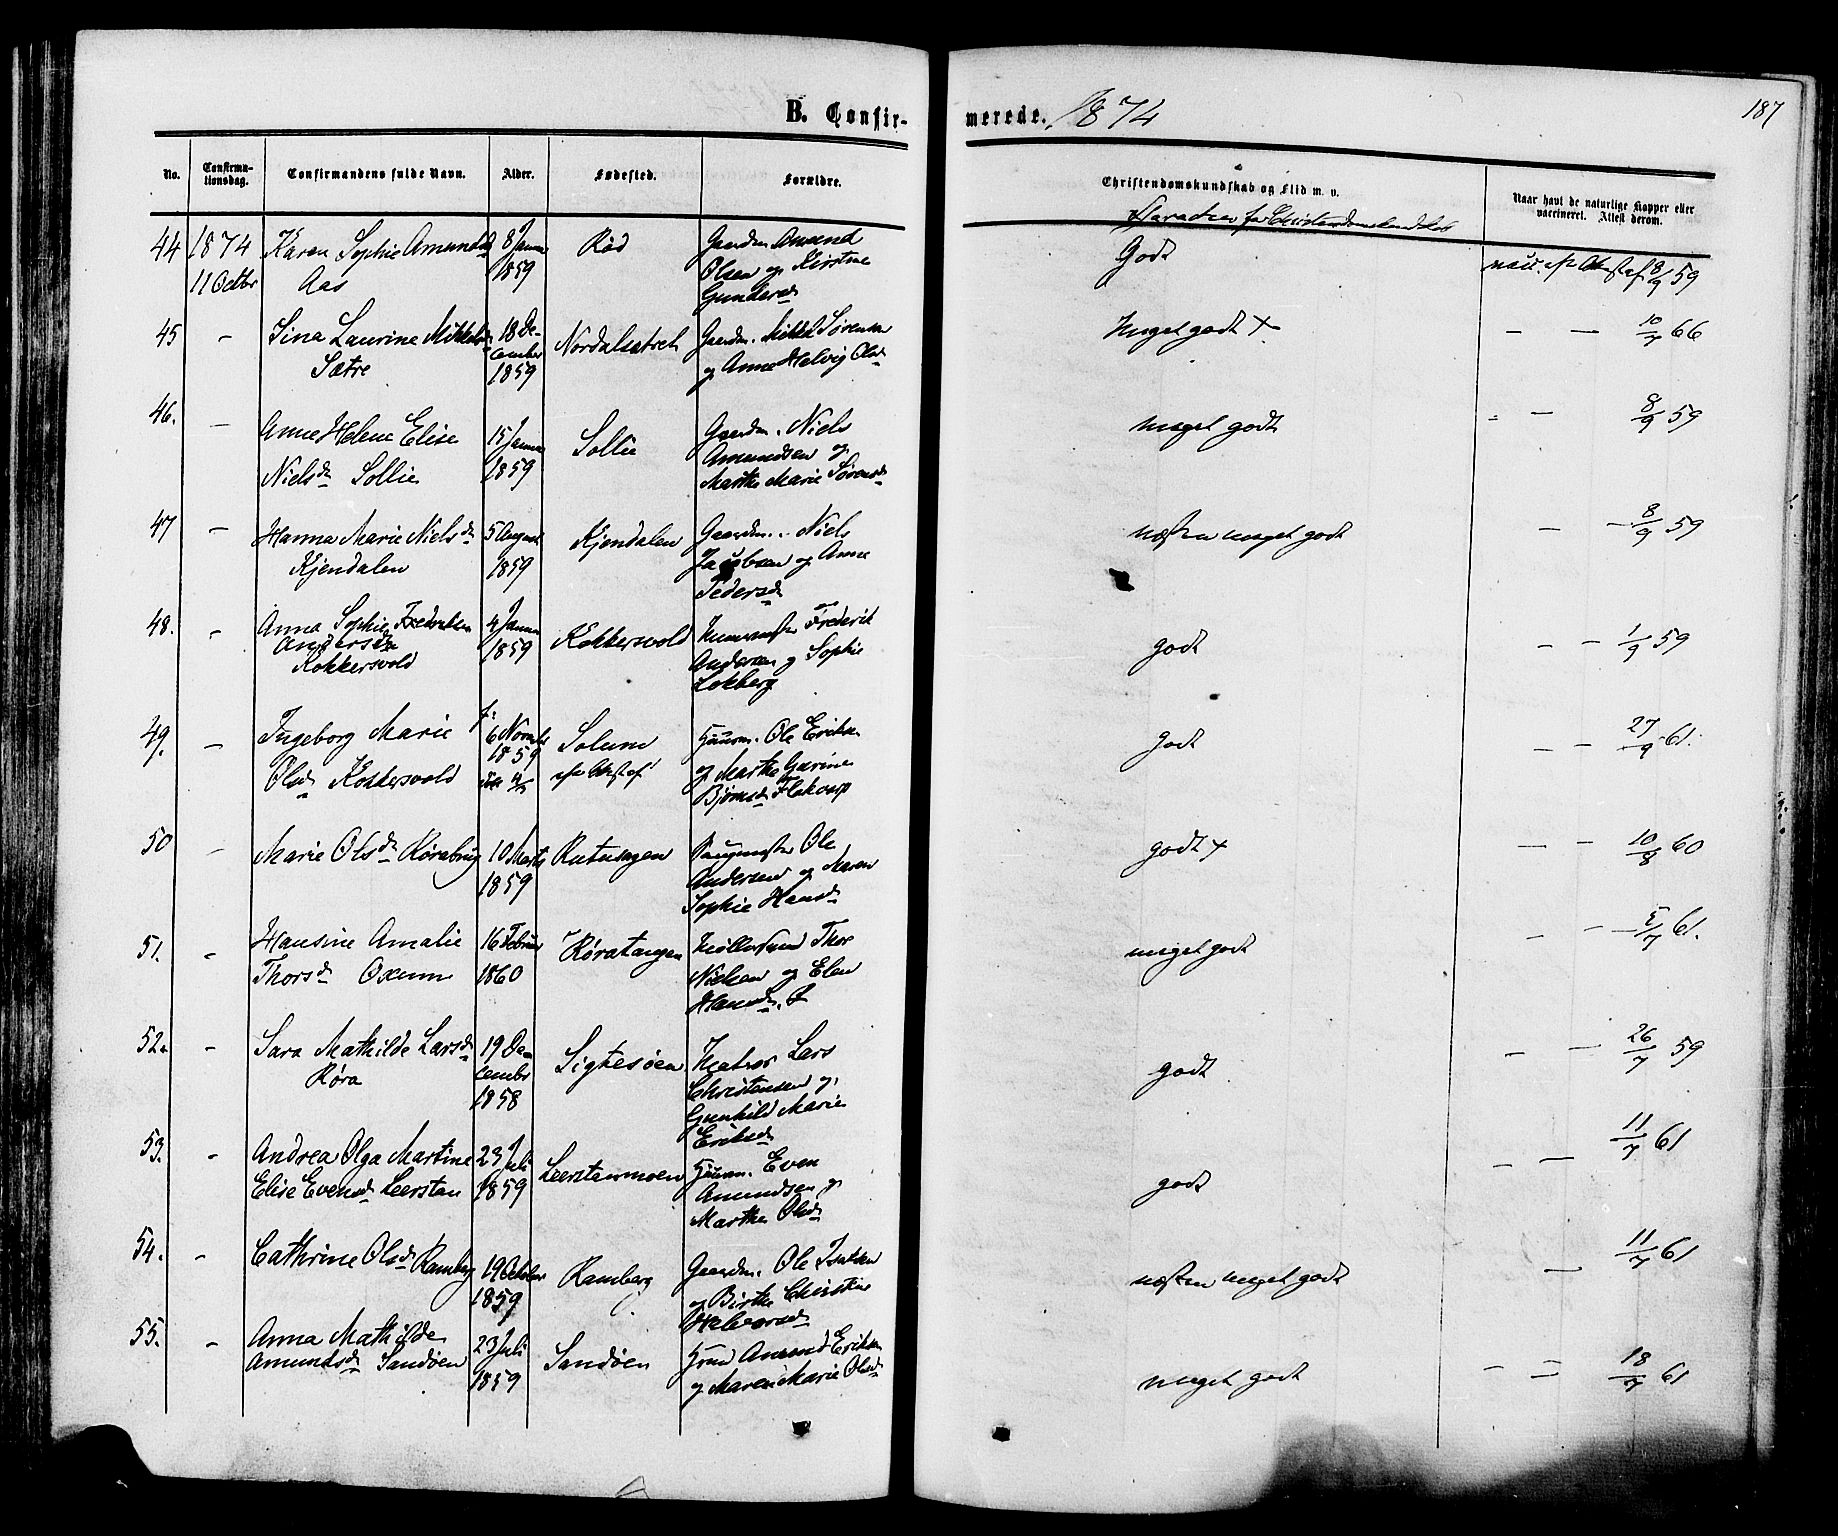 B. Confir-
merede. 1874
187
No.
Confirma-
tionsdag.
Confirmandens fulde Navn.
Alder.
Fødested.
Forældre.
Christendomskundskab og Flid m. v.
Naar havt de naturlige Kopper eller
vaccineret. Attest derom.
Karakter for Christendomskundskab
44 1874 Karen Sophie Amundsd 8 Januar Rød Gaardm. Amund
11 Octbr Aas 1859 Olsen og Kirstine
Gundersd
Godt
vacc. af 8/9 59
45 – Sina Laurine Mikkelsd 18 De- Nordalsætret Gaardm. Mikkel Sørensen
Sætre cember og Anne Helvig Olsd
1859
Meget godt +
– – 10/7 66
46. – Anne Helene Elise 15 Januar Sollie Gaardm. Niels
Nielsd Sollie 1859 Amundsen og
Marthe Marie Sørensd
meget godt
– – 8/9 59
47 – Hanna Marie Nielsd 5 August Kjendalen Gaardm. Niels
Kjendalen 1859 Jacobsen og Anne
Pedersd
næsten meget godt
– – 8/9 59
48. – Anna Sophie Fredrikke 4 Januar Kokkersvold Frederik
Andersd 1859 Andersen og Sophie
Kokkersvold Lokberg
godt
– – 1/9 59
49. – Ingeborg Marie f. 6 Novmbr Solum Huusm. Ole Eriksen
Olsd Kokkersvold 1859 og Marthe Gurine
Bjørnsd Flakvarp
godt
– – 27/9 61.
50 – Marie Olsd Rørabrug 10 Marts Ole
1859 Andersen og Maren
Sophie Hansd
godt +
– – 10/8 60
51. – Hansine Amalie 16 Februar Røratangen Møllersvend Thor
Thorsd Oxum 1860 Nielsen og Elen
Hansd.
meget godt
– – 5/7 61.
52. – Sara Mathilde Larsd 19 De- Sigtesøen Matros Lars
Røra cembr Christensen og
1858 Gunhild Marie
Eriksd
godt
– – 26/7 59
53. – Andrea Olga Martine 23 Juli Leerstenmoen Huusm. Even
Elise Evensd Leersten 1859 Amundsen og
Marthe Olsd
godt
– – 11/7 61
54. – Cathrine Olsd Ramberg 19 October Ramberg Gaardm. Ole Isaksen
1859 og Birthe Christine
Halvorsd
næsten meget godt
– 11/7 61
55. – Anna Mathilde 23 Juli Sandøen Amund Eriksen
Amundsd Sandøen 1859 og Maren Marie Olsd
meget godt
– – 18/7 61